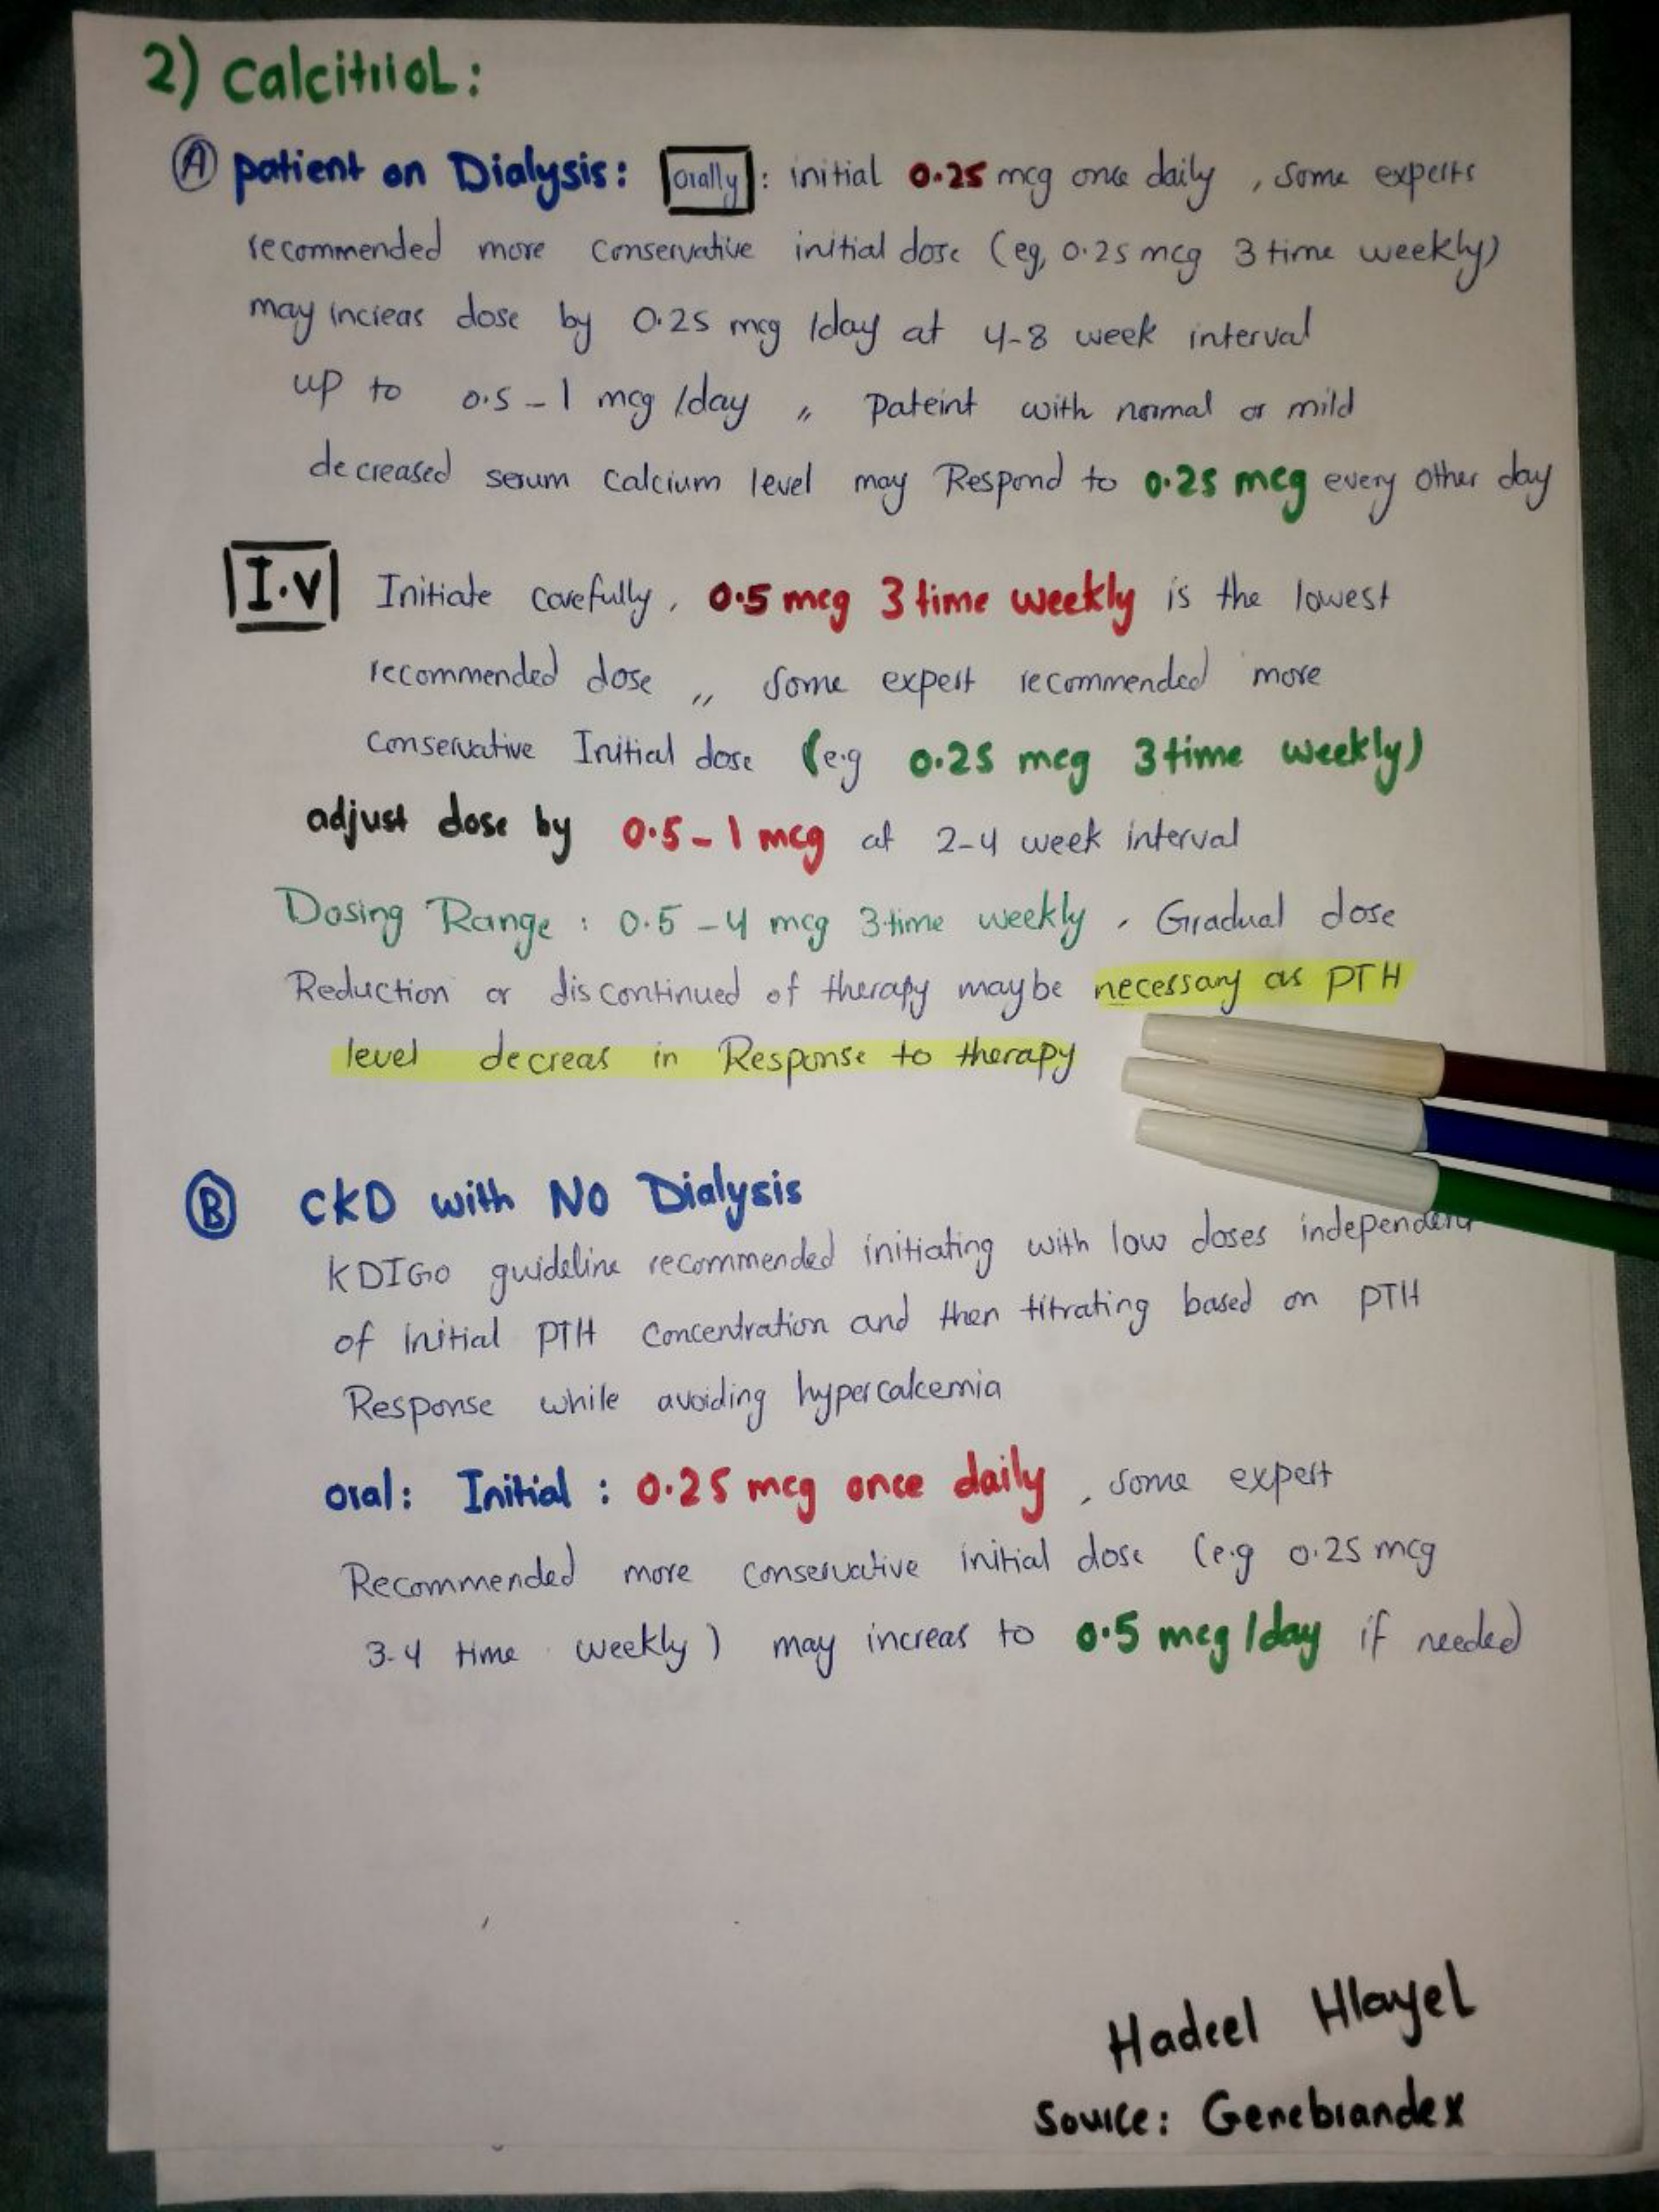 2) Calcitriol:
A patient on Dialysis: orally : initial 0.25 mcg once daily , some experts
recommended more conservative initial dose (eg, 0.25 mcg 3 time weekly)
may increas dose by 0.25 mcg /day at 4-8 week interval
up to 0.5 - 1 mcg /day ,, Pateint with normal or mild
decreased serum calcium level may Respond to 0.25 mcg every other day
I.V Initiate carefully , 0.5 mcg 3 time weekly is the lowest
recommended dose ,, some expert recommended more
conservative Initial dose (e.g 0.25 mcg 3 time weekly)
adjust dose by 0.5 - 1 mcg at 2-4 week interval
Dosing Range : 0.5 - 4 mcg 3 time weekly , Gradual dose
Reduction or discontinued of therapy maybe necessary as PTH
level decreas in Response to therapy
B CKD with No Dialysis
KDIGO guideline recommended initiating with low doses independent
of initial PTH concentration and then titrating based on PTH
Response while avoiding hypercalcemia
oral: Initial : 0.25 mcg once daily , some expert
Recommended more conservative initial dose (e.g 0.25 mcg
3-4 time weekly) may increas to 0.5 mcg /day if needed
Hadeel Hlayel
Source: Genebrandex